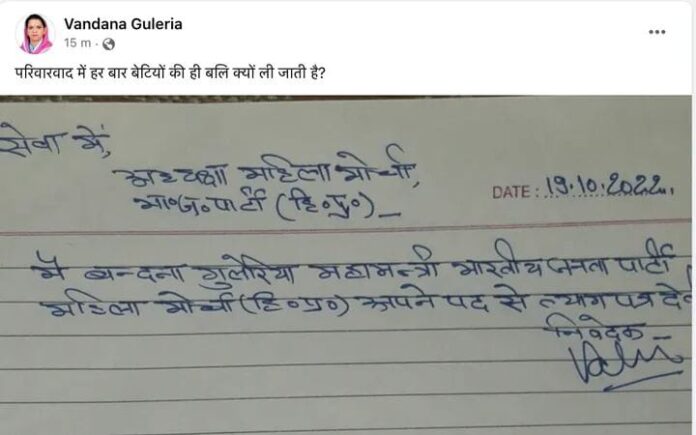 Vandana Guleria
15 m
परिवारवाद में हर बार बेटियों की ही बलि क्यों ली जाती है?
सेवा में,
अध्यक्षा महिला मोर्चा,
भा०ज०पार्टी (हि०प्र०)
DATE : 19.10.2022.
मैं बन्दना गुलेरिया महामन्त्री भारतीय जनता पार्टी
महिला मोर्चा (हि०प्र०) अपने पद से त्यागपत्र
निवेदक